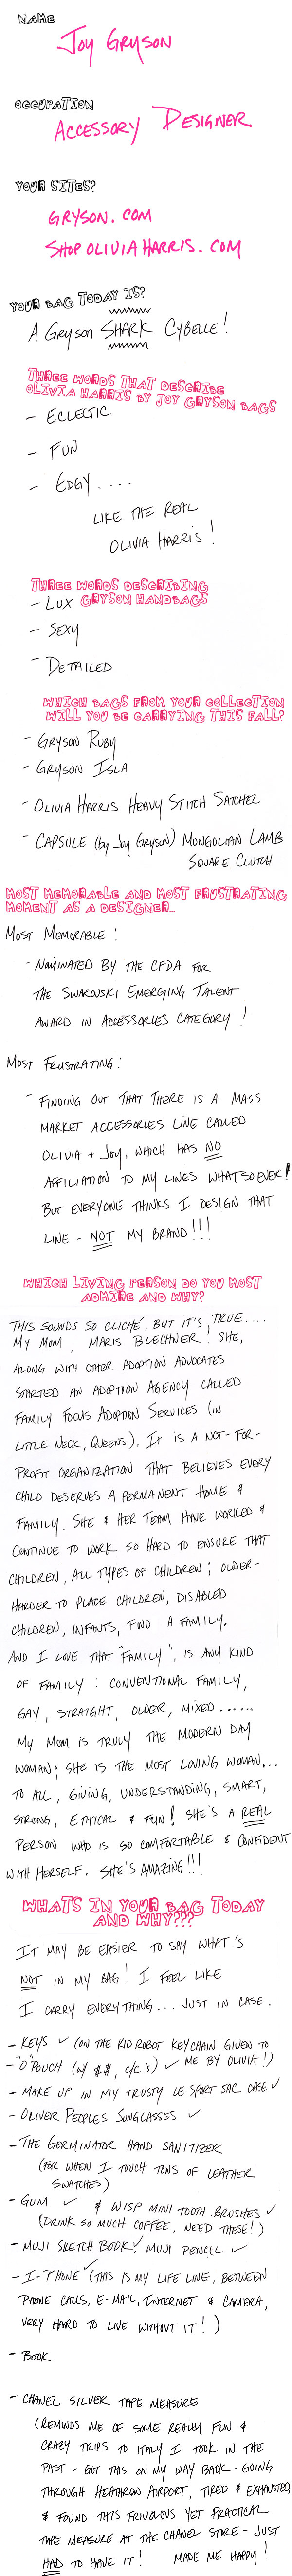 NAME
JOY GRYSON
OCCUPATION
ACCESSORY DESIGNER
YOUR SITES?
GRYSON.COM
SHOPOLIVIAHARRIS.COM
YOUR BAG TODAY IS?
A Gryson SHARK CYBELLE!
THREE WORDS THAT DESCRIBE
OLIVIA HARRIS BY JOY GRYSON BAGS
- ECLECTIC
- FUN
- EDGY....
LIKE THE REAL
OLIVIA HARRIS!
THREE WORDS DESCRIBING
GRYSON HANDBAGS
- LUX
- SEXY
- DETAILED
WHICH BAGS FROM YOUR COLLECTION
WILL YOU BE CARRYING THIS FALL?
- GRYSON RUBY
- GRYSON ISLA
- OLIVIA HARRIS HEAVY STITCH SATCHEL
- CAPSULE (by Joy GRYSON) MONGOLIAN LAMB
SQUARE CLUTCH
MOST MEMORABLE AND MOST FRUSTRATING
MOMENT AS A DESIGNER...
MOST MEMORABLE:
- NOMINATED BY THE CFDA FOR
THE SWAROVSKI EMERGING TALENT
AWARD IN ACCESSORIES CATEGORY!
MOST FRUSTRATING:
- FINDING OUT THAT THERE IS A MASS
MARKET ACCESSORIES LINE CALLED
OLIVIA + JOY, WHICH HAS NO
AFFILIATION TO MY LINES WHATSOEVER!
BUT EVERYONE THINKS I DESIGN THAT
LINE - NOT MY BRAND!!!
WHICH LIVING PERSON DO YOU MOST
ADMIRE AND WHY?
THIS SOUNDS SO CLICHÉ, BUT IT'S TRUE....
MY MOM, MARIS BLECHNER! SHE,
ALONG WITH OTHER ADOPTION ADVOCATES
STARTED AN ADOPTION AGENCY CALLED
FAMILY FOCUS ADOPTION SERVICES (IN
LITTLE NECK, QUEENS). IT IS A NOT-FOR-
PROFIT ORGANIZATION THAT BELIEVES EVERY
CHILD DESERVES A PERMANENT HOME &
FAMILY. SHE & HER TEAM HAVE WORKED &
CONTINUE TO WORK SO HARD TO ENSURE THAT
CHILDREN, ALL TYPES OF CHILDREN; OLDER-
HARDER TO PLACE CHILDREN, DISABLED
CHILDREN, INFANTS, FIND A FAMILY.
AND I LOVE THAT "FAMILY", IS ANY KIND
OF FAMILY: CONVENTIONAL FAMILY,
GAY, STRAIGHT, OLDER, MIXED......
MY MOM IS TRULY THE MODERN DAY
WOMAN; SHE IS THE MOST LOVING WOMAN...
TO ALL, GIVING, UNDERSTANDING, SMART,
STRONG, ETHICAL & FUN! SHE'S A REAL
PERSON WHO IS SO COMFORTABLE & CONFIDENT
WITH HERSELF. SHE'S AMAZING!!!
WHATS IN YOUR BAG TODAY
AND WHY???
IT MAY BE EASIER TO SAY WHAT'S
NOT IN MY BAG! I FEEL LIKE
I CARRY EVERYTHING... JUST IN CASE.
- KEYS ✓ (ON THE KIDROBOT KEYCHAIN GIVEN TO
ME BY OLIVIA!)
- "O" POUCH (w/ $$, c/c's) ✓
- MAKE UP IN MY TRUSTY LE SPORT SAC CASE ✓
- OLIVER PEOPLES SUNGLASSES ✓
- THE GERMINATOR HAND SANITIZER
(FOR WHEN I TOUCH TONS OF LEATHER
SWATCHES)
- GUM ✓ & WISP MINI TOOTH BRUSHES ✓
(DRINK SO MUCH COFFEE, NEED THESE!)
- MUJI SKETCH BOOK ✓, MUJI PENCIL ✓
- I-PHONE ✓ (THIS IS MY LIFE LINE, BETWEEN
PHONE CALLS, E-MAIL, INTERNET & CAMERA,
VERY HARD TO LIVE WITHOUT IT!)
- BOOK
- CHANEL SILVER TAPE MEASURE
(REMINDS ME OF SOME REALLY FUN &
CRAZY TRIPS TO ITALY I TOOK IN THE
PAST - GOT THIS ON MY WAY BACK - GOING
THROUGH HEATHROW AIRPORT, TIRED & EXHAUSTED
& FOUND THIS FRIVOLOUS YET PRACTICAL
TAPE MEASURE AT THE CHANEL STORE - JUST
HAD TO HAVE IT! MADE ME HAPPY!